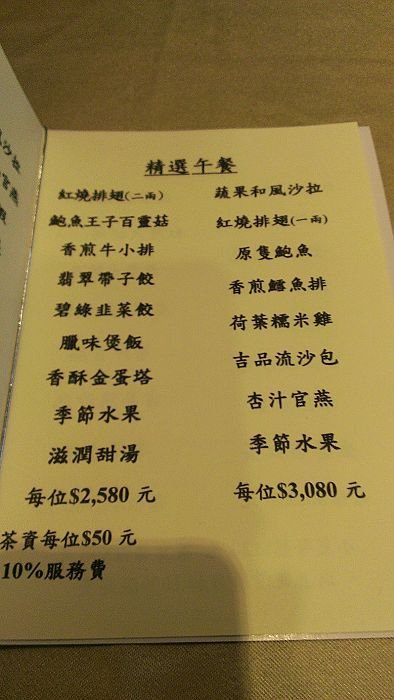 精選午餐
紅燒排翅(二兩)
鮑魚王子百靈菇
香煎牛小排
翡翠帶子餃
碧綠韭菜餃
臘味煲飯
香酥金蛋塔
季節水果
滋潤甜湯
每位$2,580 元
茶資每位$50 元
10%服務費
蔬果和風沙拉
紅燒排翅(一兩)
原隻鮑魚
香煎鱈魚排
荷葉糯米雞
吉品流沙包
杏汁官燕
季節水果
每位$3,080 元